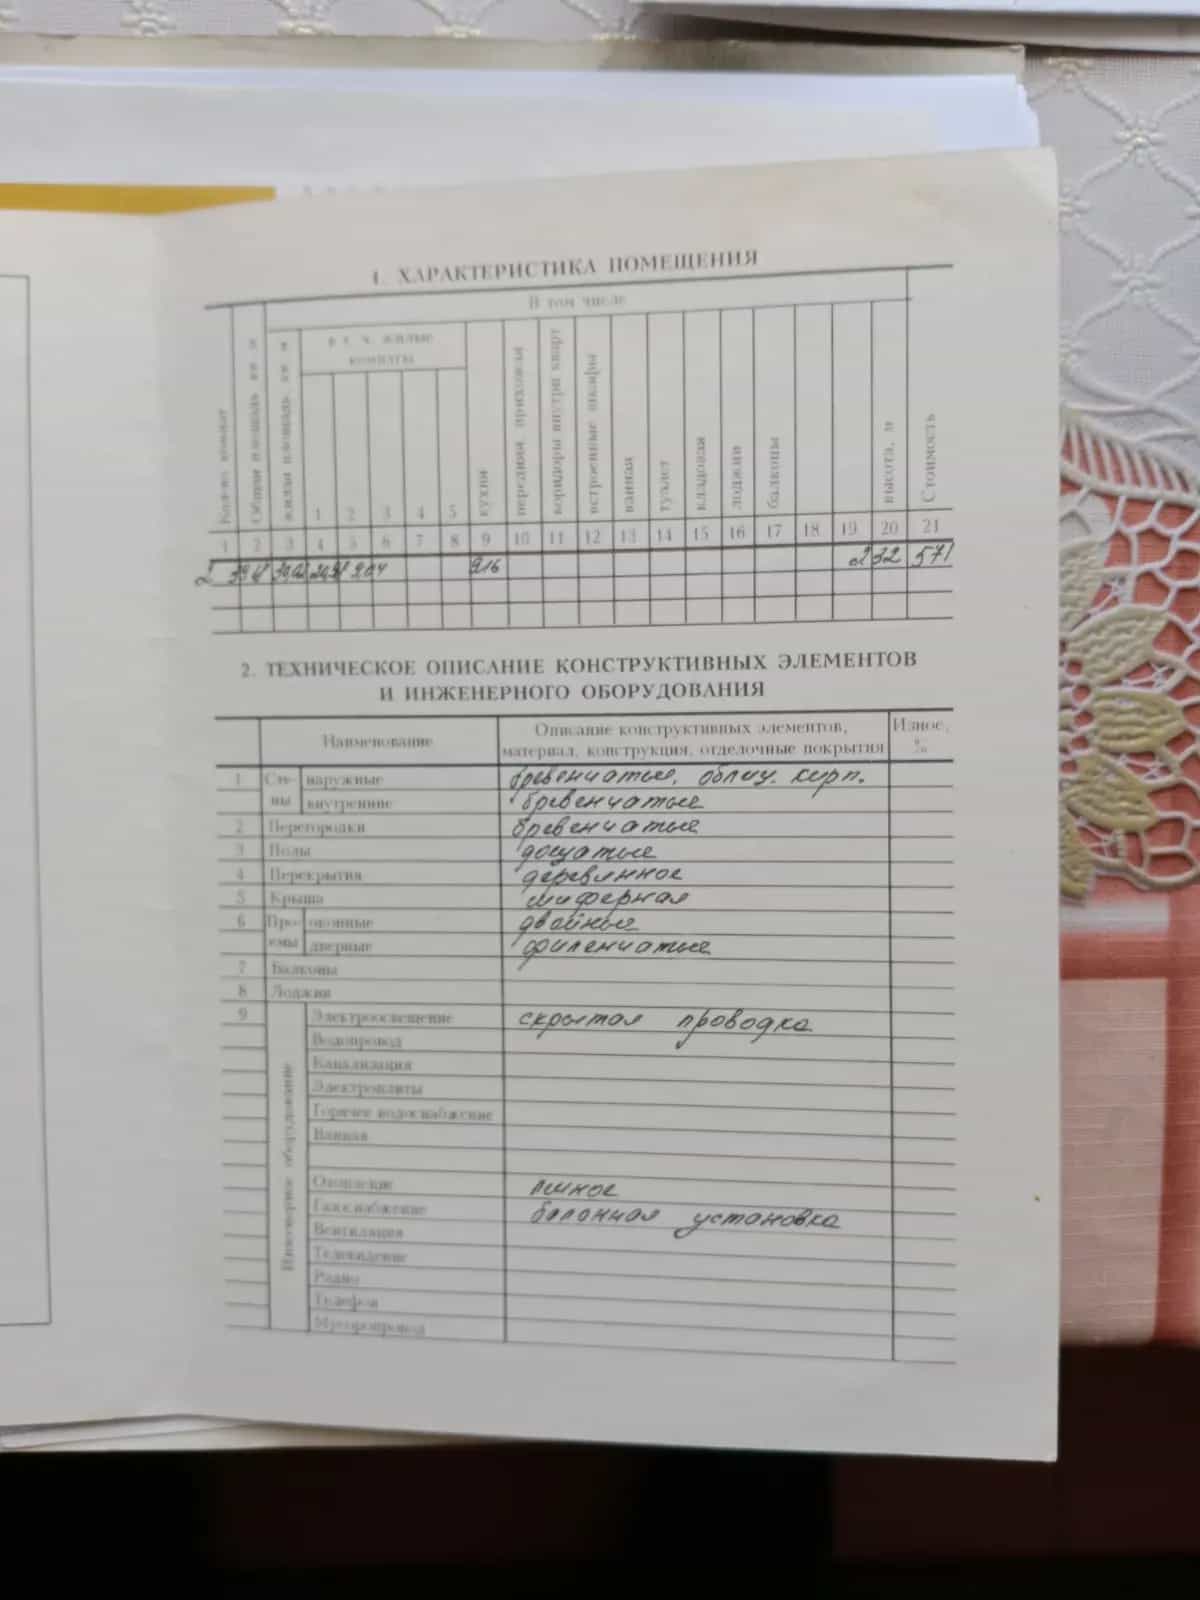 1. ХАРАКТЕРИСТИКА ПОМЕЩЕНИЯ
Кол-во комнат
Общая площадь кв м
жилая площадь кв м
В том числе
в т. ч. жилые
комнаты
кухни
передняя, прихожая
коридоры внутри кварт
встроенные шкафы
ванная
туалет
кладовая
лоджии
балконы
высота, м
Стоимость
1 2 3 4 5
1 2 3 4 5 6 7 8 9 10 11 12 13 14 15 16 17 18 19 20 21
2 9.04 9.16 2.32 571
2. ТЕХНИЧЕСКОЕ ОПИСАНИЕ КОНСТРУКТИВНЫХ ЭЛЕМЕНТОВ
И ИНЖЕНЕРНОГО ОБОРУДОВАНИЯ
Наименование
Описание конструктивных элементов,
материал, конструкция, отделочные покрытия
Износ,
%
1 Сте- наружные бревенчатые, облиц. кирп.
ны внутренние бревенчатые
2 Перегородки бревенчатые
3 Полы дощатые
4 Перекрытия деревянное
5 Крыша шиферная
6 Про- оконные двойные
емы дверные филенчатые
7 Балконы
8 Лоджии
9 Инженерное оборудование
Электроосвещение скрытая проводка
Водопровод
Канализация
Электроплиты
Горячее водоснабжение
Ванная
Отопление печное
Газоснабжение балонная установка
Вентиляция
Телевидение
Радио
Телефон
Мусоропровод